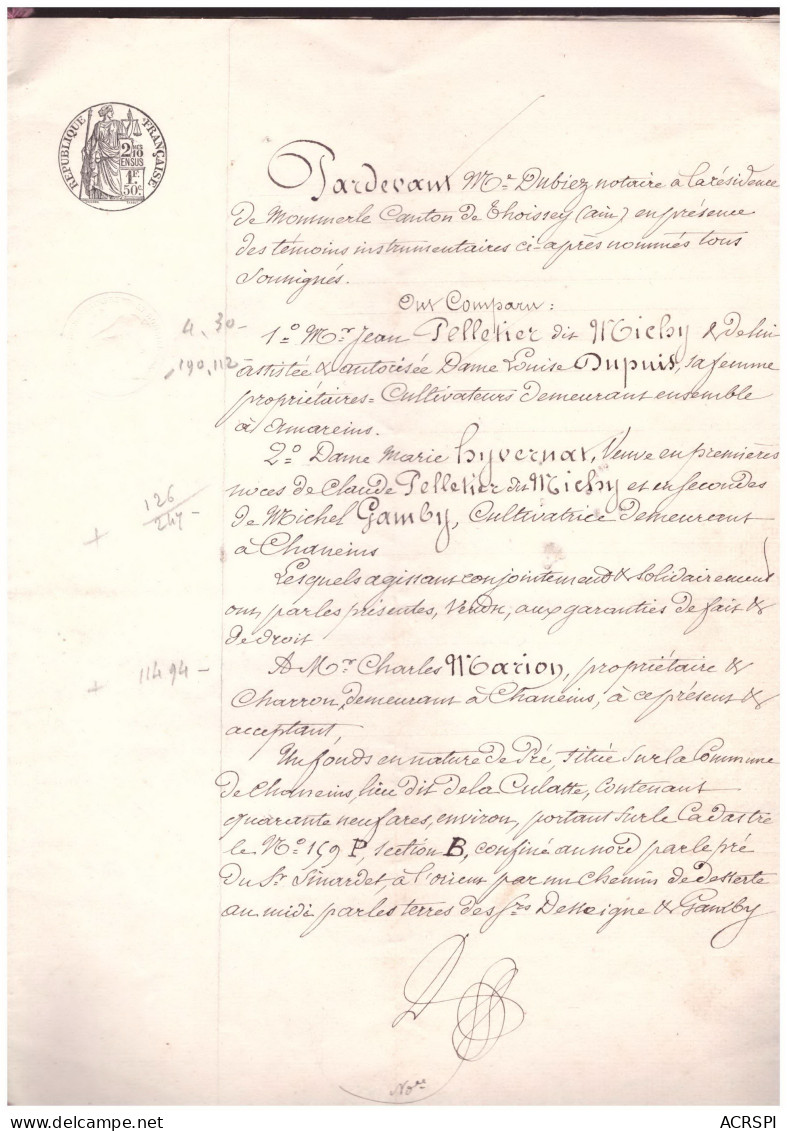 RÉPUBLIQUE FRANÇAISE
2/10 EN SUS
1F 50c
Pardevant Me Dubiez notaire à la résidence
de Mommerle Canton de Thoissey (ain) en présence
des témoins instrumentaires ci-après nommés tous
soussignés.
Ont Comparu:
4.30-
1o Mr Jean Pelletier dit Michy & de lui
190,112-
assistée & autorisée Dame Louise Dupuis, sa femme
propriétaires=Cultivateurs demeurant ensemble
à Amareins.
2o Dame Marie hyvernat, Veuve en premières
126/247-
noces de Claude Pelletier dit Michy et en secondes
de Michel Gamby, Cultivatrice demeurant
+
à Chaneins
Lesquels agissant conjointement & solidairement
ont par les présentes, Vendu, aux garanties de fait &
de droit
11494-
A Mr Charles Marion, propriétaire &
+
Charron demeurant à Chaneins, à ce présent &
acceptant,
Un fonds en nature de Pré, située sur la Commune
de Chaneins, lieu dit de la Culatte, contenant
quarante neuf ares, environ, portant sur le Cadastre
le No 159 P, section B, confiné au nord par le pré
du Sr Sinardet, à l'orient par un chemin de desserte
au midi par les terres des Srs Desseigne & Gamby
ACRSPI